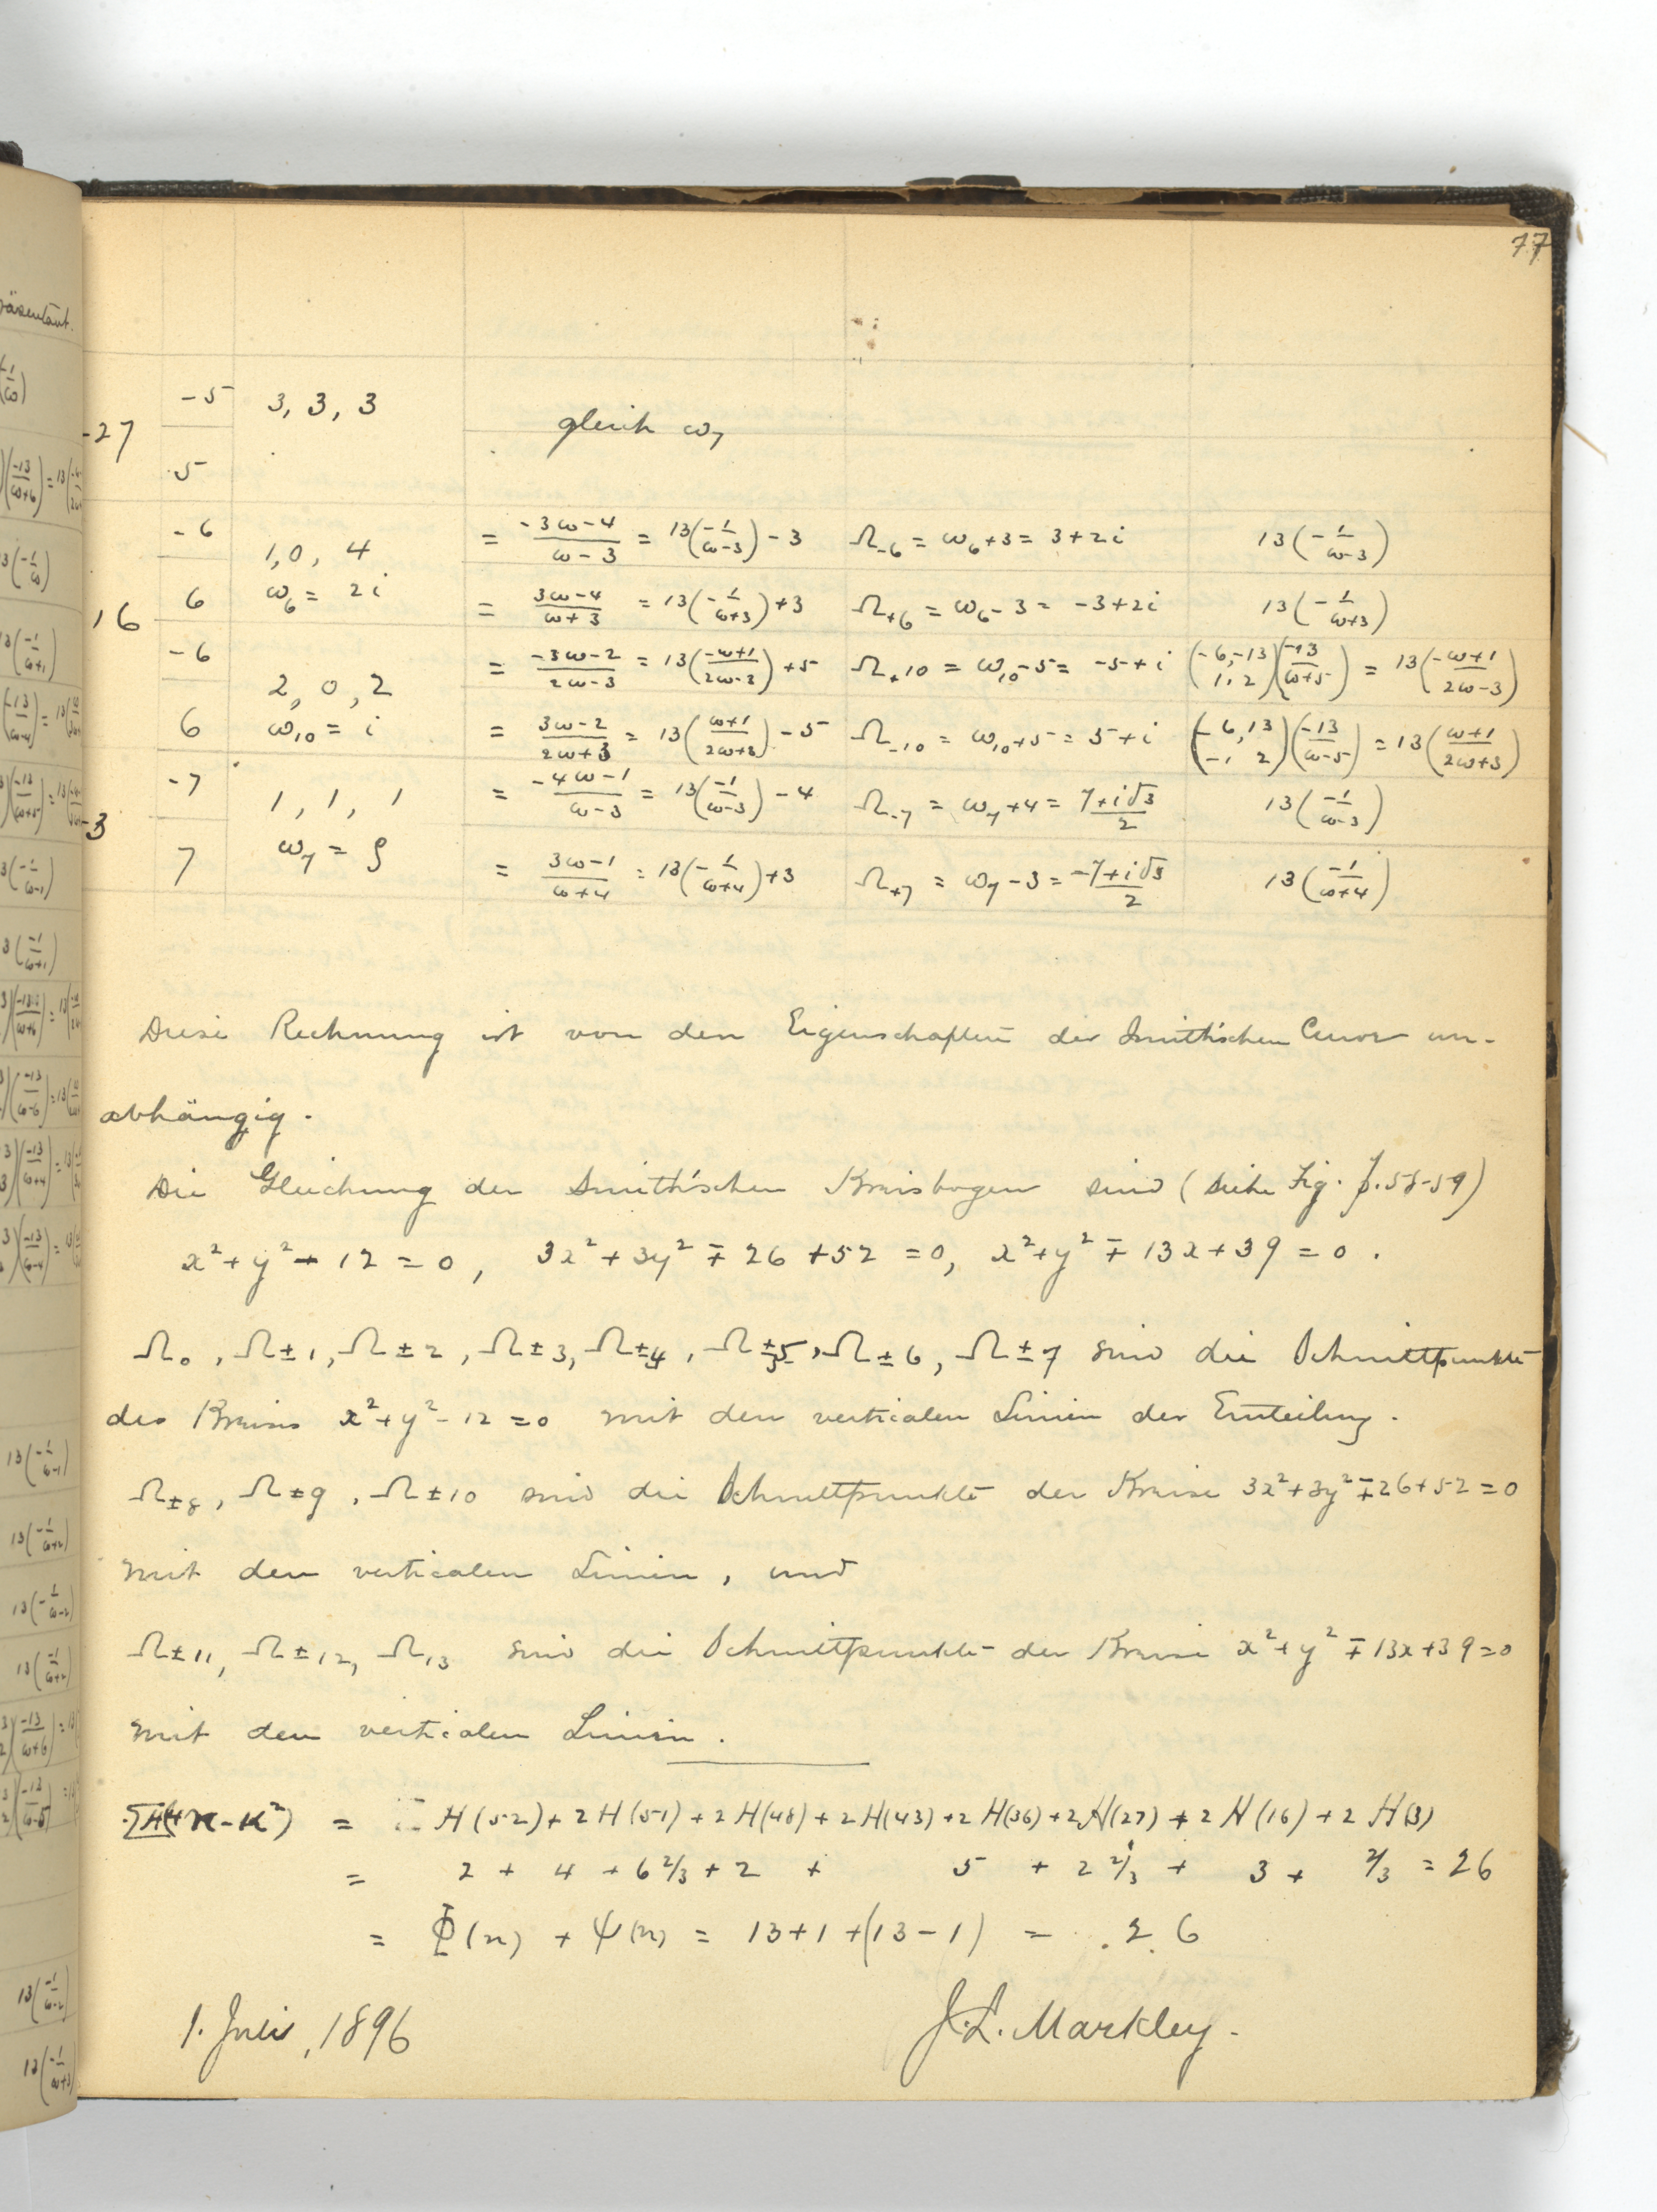 77
-27 -5 3, 3, 3 gleich ω₇
5
-6 = (-3ω-4)/(ω-3) = 13(-1/(ω-3)) - 3 Ω₋₆ = ω₆+3 = 3+2i 13(-1/(ω-3))
1, 0, 4
16 6 ω₆ = 2i = (3ω-4)/(ω+3) = 13(-1/(ω+3)) + 3 Ω₊₆ = ω₆-3 = -3+2i 13(-1/(ω+3))
-6 = (-3ω-2)/(2ω-3) = 13((-ω+1)/(2ω-3)) + 5 Ω₊₁₀ = ω₁₀-5 = -5+i (-6,-13 / 1, 2)(-13/(ω+5)) = 13((-ω+1)/(2ω-3))
2, 0, 2
6 ω₁₀ = i = (3ω-2)/(2ω+3) = 13((ω+1)/(2ω+3)) - 5 Ω₋₁₀ = ω₁₀+5 = 5+i (-6, 13 / -1, 2)(-13/(ω-5)) = 13((ω+1)/(2ω+3))
-7 1, 1, 1 = (-4ω-1)/(ω-3) = 13(-1/(ω-3)) - 4 Ω₋₇ = ω₇+4 = (7+i√3)/2 13(-1/(ω-3))
-3
7 ω₇ = ρ = (3ω-1)/(ω+4) = 13(-1/(ω+4)) + 3 Ω₊₇ = ω₇-3 = (-7+i√3)/2 13(-1/(ω+4))
Diese Rechnung ist von den Eigenschaften der Smith'schen Curve un-
abhängig.
Die Gleichung der Smith'schen Kreisbogen sind (siehe Fig. p. 58-59)
x²+y²-12 = 0, 3x²+3y² ∓ 26 + 52 = 0, x²+y² ∓ 13x+39 = 0.
Ω₀, Ω±1, Ω±2, Ω±3, Ω±4, Ω±5, Ω±6, Ω±7 sind die Schnittpunkte
des Kreises x²+y²-12 = 0 mit den verticalen Linien der Einteilung.
Ω±8, Ω±9, Ω±10 sind die Schnittpunkte der Kreise 3x²+3y²∓26+52 = 0
mit den verticalen Linien, und
Ω±11, Ω±12, Ω13 sind die Schnittpunkte der Kreise x²+y² ∓ 13x+39=0
mit den verticalen Linien.
ΣH(4n-κ²) = H(52)+2H(51)+2H(48)+2H(43)+2H(36)+2H(27)+2H(16)+2H(3)
= 2 + 4 + 6 2/3 + 2 + 5 + 2 2/3 + 3 + 2/3 = 26
= Φ(n) + Ψ(n) = 13+1 +(13-1) = 26
1. Juli, 1896 J. L. Markley.